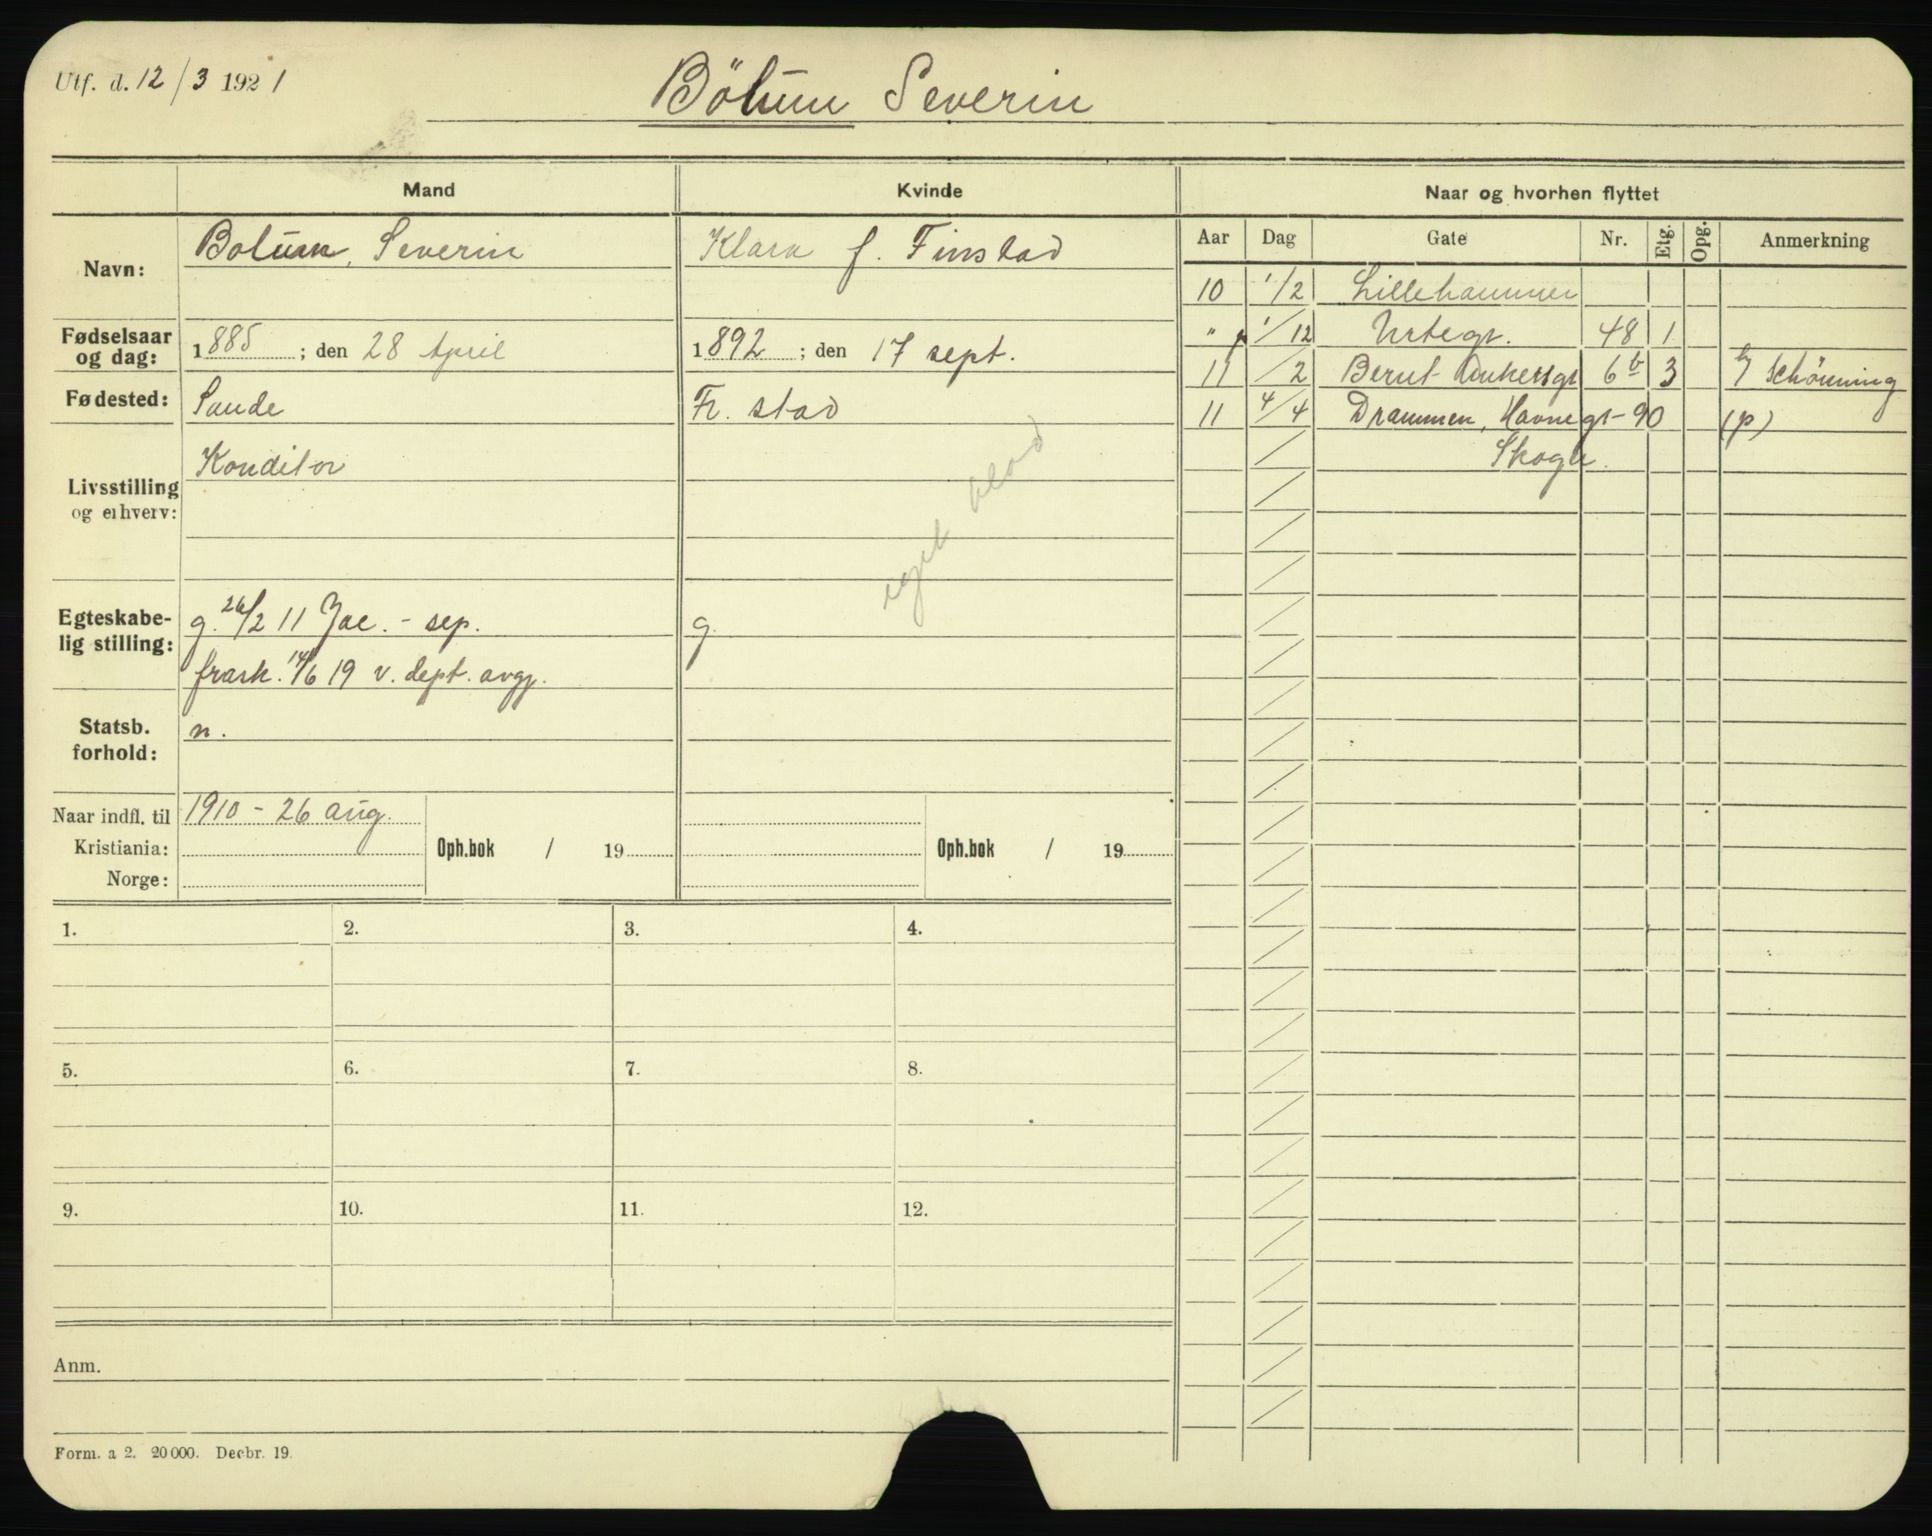 Utf. d. 12/3 1921
Bölum Severin
Mand
Kvinde
Naar og hvorhen flyttet
Navn:
Bolum, Severin
Klara f. Finstad
Aar Dag Gate Nr. Etg. Opg. Anmerkning
10 1/2 Lillehammer
" 1/12 Urtegt. 48 1
11 /2 Bernt Ankersgt 6b 3 Schönning
11 4/4 Drammen, Havnegt - 90 (p)
Skogli.
Fødselsaar og dag:
1885 ; den 28 April
1892 ; den 17 sept.
Fødested:
Sande
Fr. stad
Livsstilling og erhverv:
Konditor
eget blad
Egteskabelig stilling:
g. 26/2 11 Jac. - sep.
g.
frask. 14/6 19 v. dept. avgj.
Statsb. forhold:
n.
Naar indfl. til
1910 - 26 aug.
Kristiania:
Oph.bok / 19
Oph.bok / 19
Norge:
1. 2. 3. 4.
5. 6. 7. 8.
9. 10. 11. 12.
Anm.
Form. a 2. 20 000. Decbr. 19.